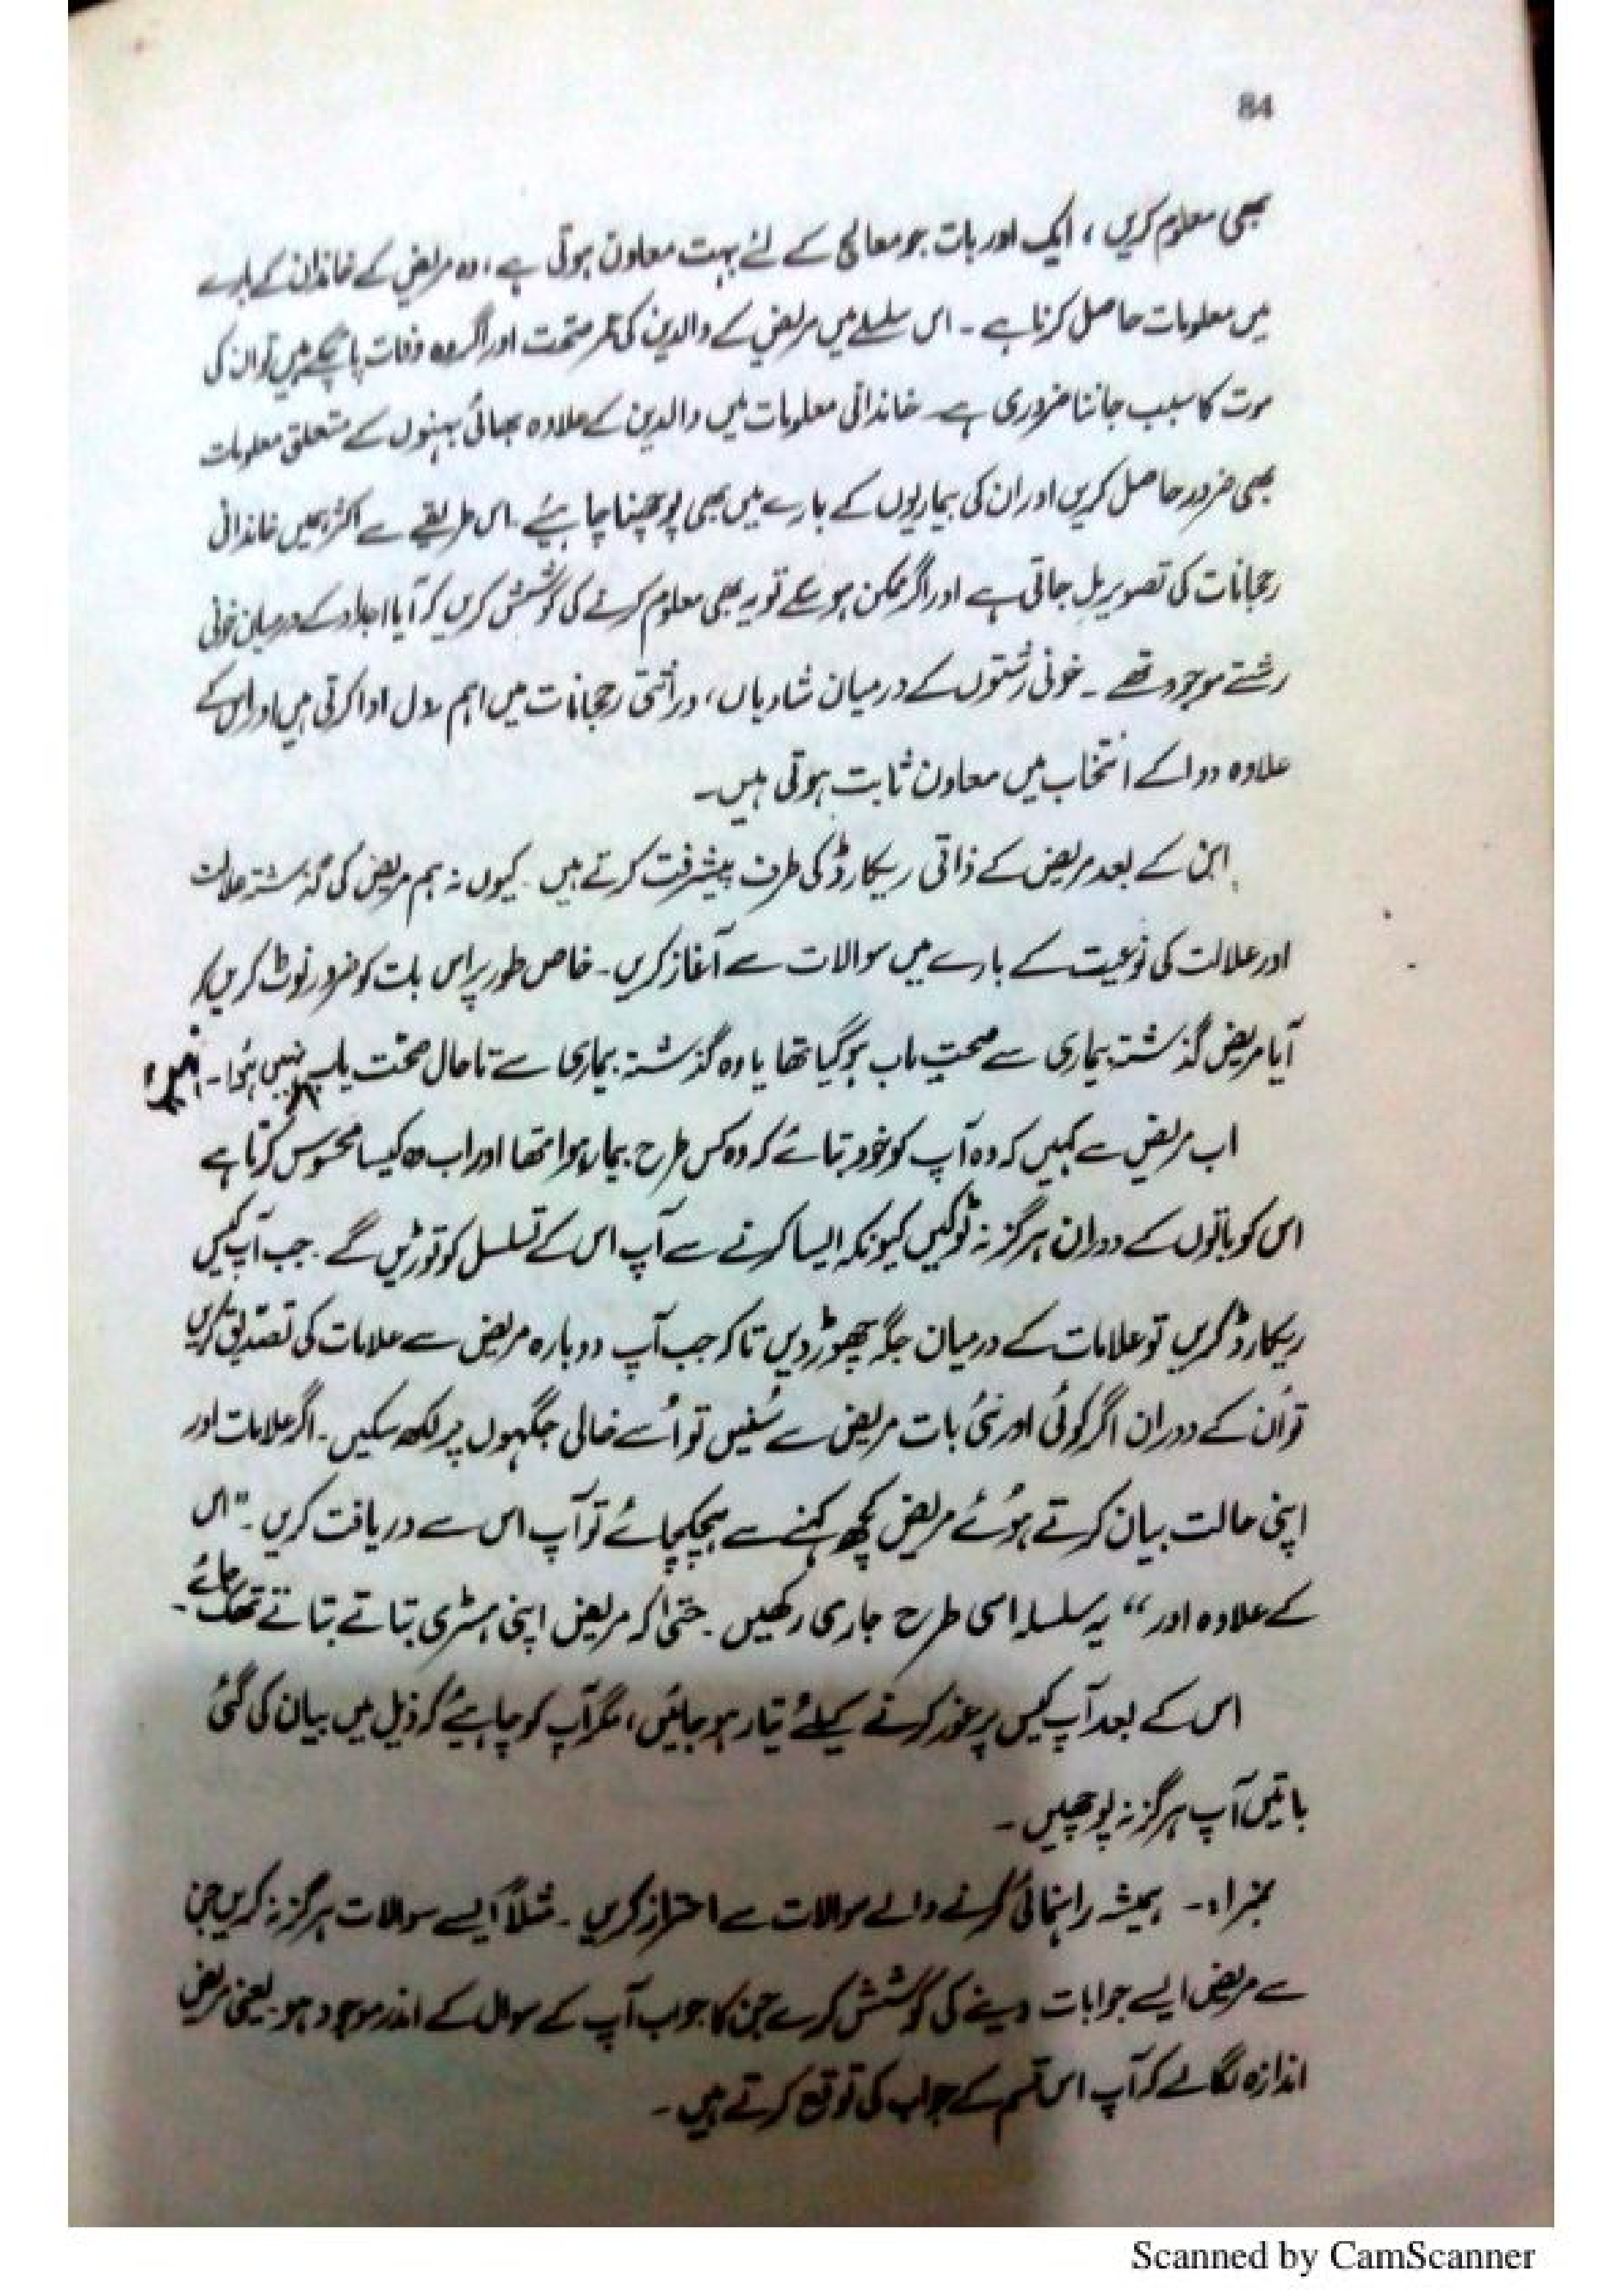 84
بھی معلوم کریں، ایک اور بات جو معالج کے لئے بہت معاون ہوتی ہے، وہ مریض کے خاندان کے بارے
میں معلومات حاصل کرنا ہے ۔ اس سلسلے میں مریض کے والدین کی عمر صحت اور اگر وہ وفات پا چکے ہیں تو ان کی
موت کا سبب جاننا ضروری ہے۔ خاندانی معلومات میں والدین کے علاوہ بھائی بہنوں کے متعلق معلومات
بھی ضرور حاصل کریں اور ان کی بیماریوں کے بارے میں بھی پوچھنا چاہیئے ۔ اس طریقے سے اکثر ہمیں خاندانی
رجحانات کی تصویر مل جاتی ہے اور اگر ممکن ہو سکے تو یہ بھی معلوم کرنے کی کوشش کریں کہ آیا اجداد کے درمیان خونی
رشتے موجود تھے ۔ خونی رشتوں کے درمیان شادیاں، وراثتی رجحانات میں اہم رول ادا کرتی ہیں اور اس کے
علاوہ دوا کے انتخاب میں معاون ثابت ہوتی ہیں۔
اس کے بعد مریض کے ذاتی ریکارڈ کی طرف پیشرفت کرتے ہیں ۔ کیوں نہ ہم مریض کی گذشتہ علالت
اور علالت کی نوعیت کے بارے میں سوالات سے آغاز کریں ۔ خاص طور پر اس بات کو ضرور نوٹ کریں کہ
آیا مریض گذشتہ بیماری سے صحت یاب ہو گیا تھا یا وہ گذشتہ بیماری سے تا حال صحت یاب نہیں ہوا ۔
اب مریض سے کہیں کہ وہ آپ کو خود بتائے کہ وہ کس طرح بیمار ہوا تھا اور اب وہ کیسا محسوس کرتا ہے
اس کو باتوں کے دوران ہرگز نہ ٹوکیں کیونکہ ایسا کرنے سے آپ اس کے تسلسل کو توڑیں گے ۔ جب آپ کیس
ریکارڈ کریں تو علامات کے درمیان جگہ چھوڑ دیں تاکہ جب آپ دوبارہ مریض سے علامات کی تصدیق کریں
تو ان کے دوران اگر کوئی اور نئی بات مریض سے سُنیں تو اُسے خالی جگہوں پر لکھ سکیں ۔ اگر علامات اور
اپنی حالت بیان کرتے ہوئے مریض کچھ کہنے سے ہچکچائے تو آپ اس سے دریافت کریں ۔ "اس
کے علاوہ اور" یہ سلسلہ اسی طرح جاری رکھیں ۔ حتیٰ کہ مریض اپنی ہسٹری بتاتے بتاتے تھک جائے ۔
اس کے بعد آپ کیس پر غور کرنے کیلئے تیار ہو جائیں، مگر آپ کو چاہیئے کہ ذیل میں بیان کی گئی
باتیں آپ ہرگز نہ پوچھیں ۔
نمبر ۱:۔ ہمیشہ راہنمائی کرنے والے سوالات سے احتراز کریں ۔ مثلاً ایسے سوالات ہرگز نہ کریں جن
سے مریض ایسے جوابات دینے کی کوشش کرے جن کا جواب آپ کے سوال کے اندر موجود ہو ۔ یعنی مریض
اندازہ لگا لے کہ آپ اس قسم کے جواب کی توقع کرتے ہیں ۔
Scanned by CamScanner